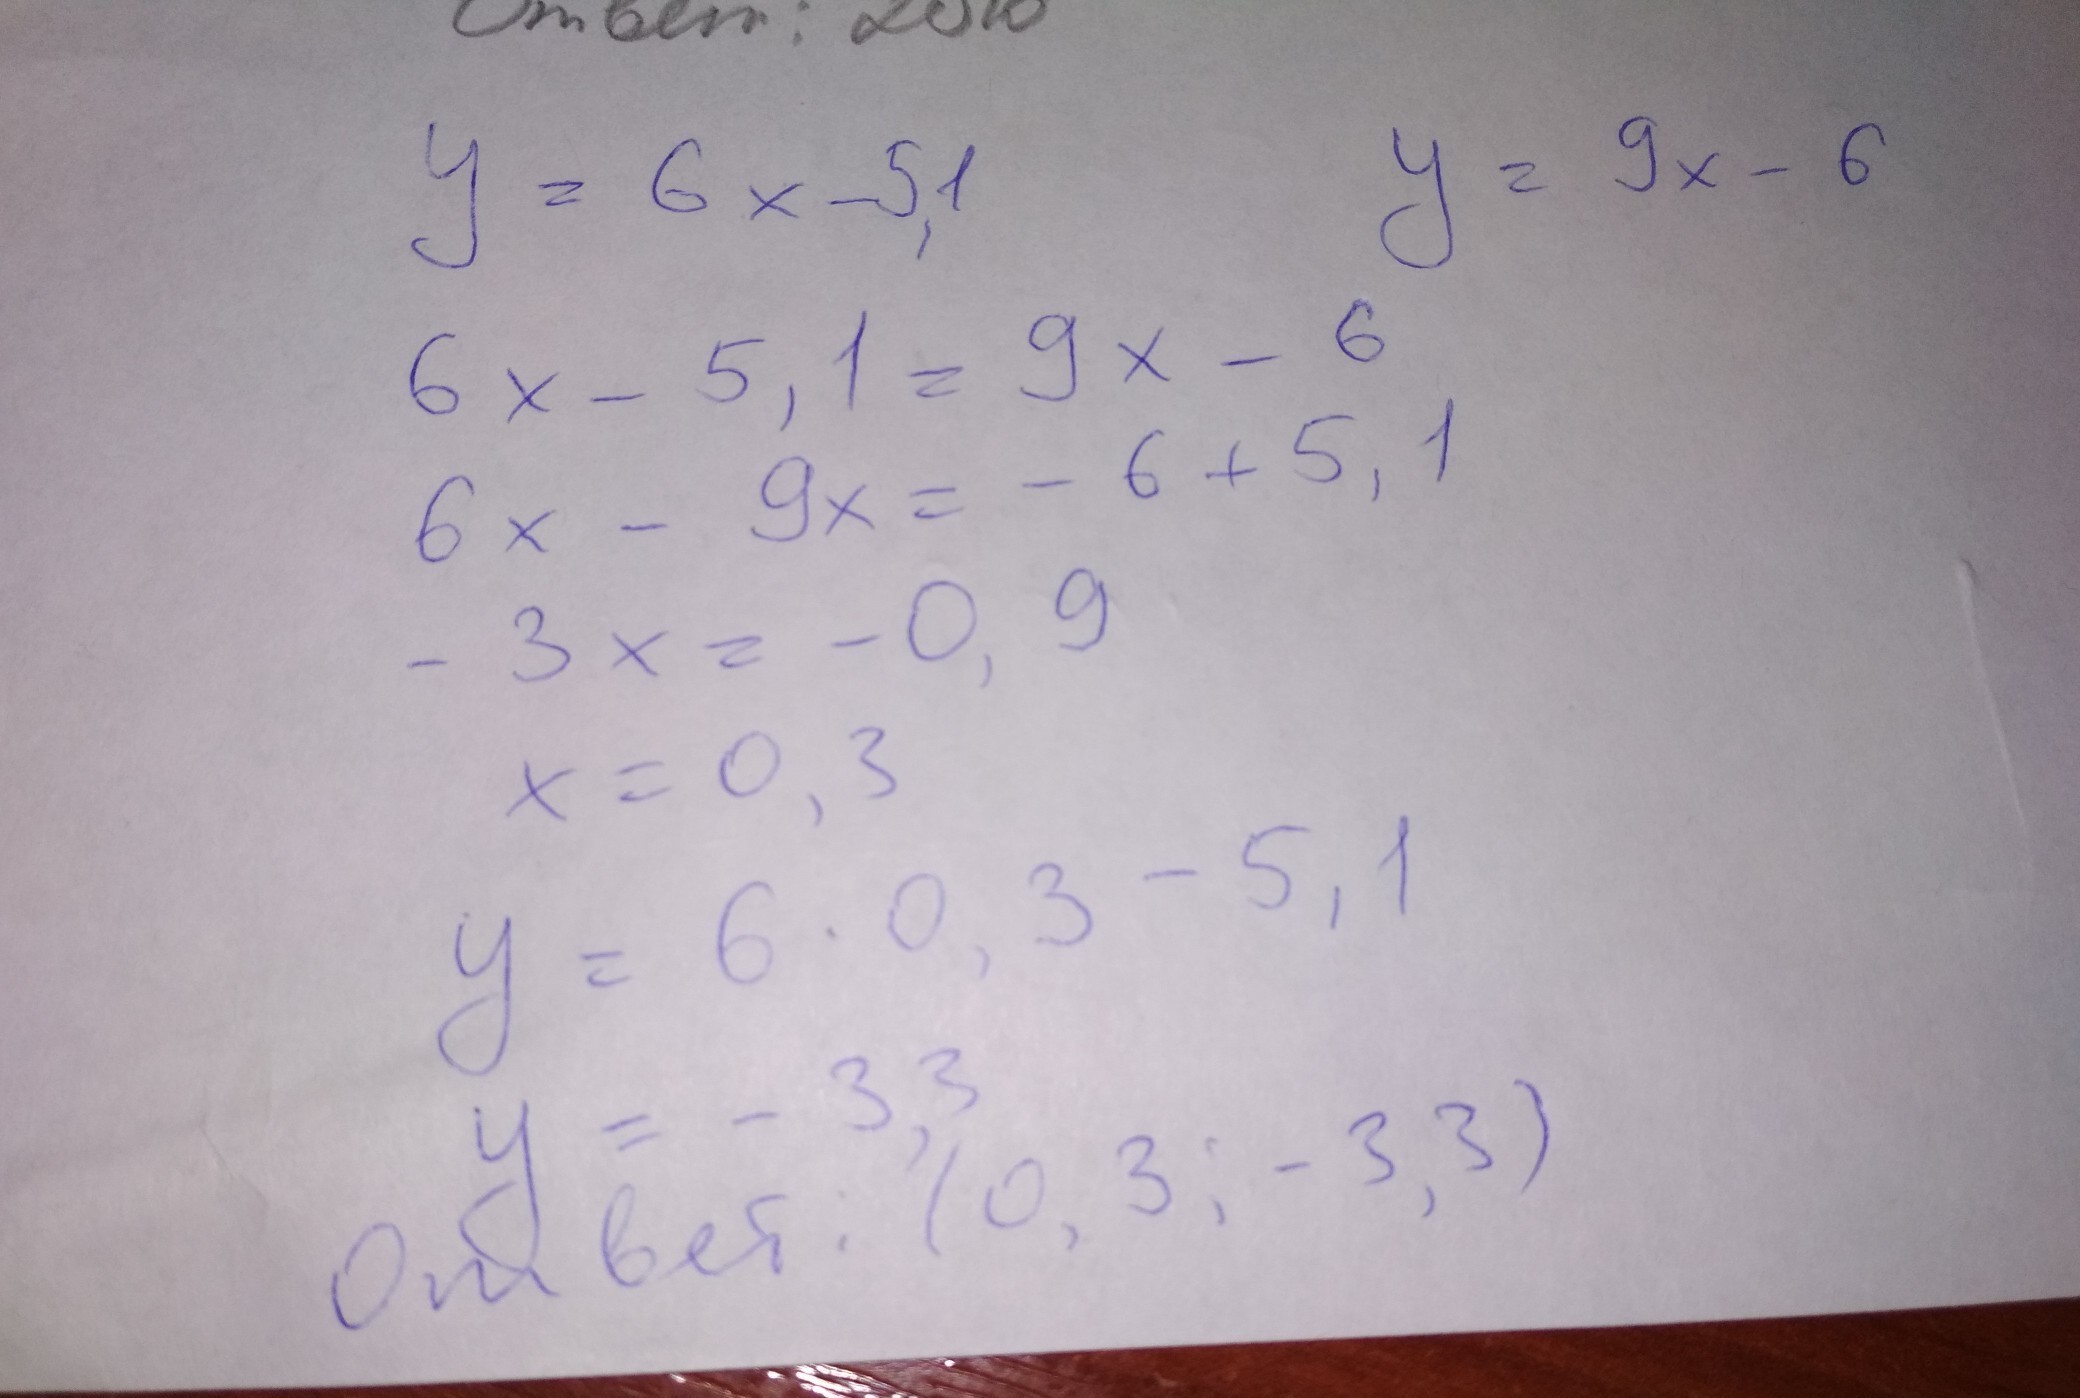 Ответ:
y = 6x - 5,1 y = 9x - 6
6x - 5,1 = 9x - 6
6x - 9x = - 6 + 5,1
- 3x = - 0,9
x = 0,3
y = 6 · 0,3 - 5,1
y = - 3,3
Ответ: (0,3; -3,3)